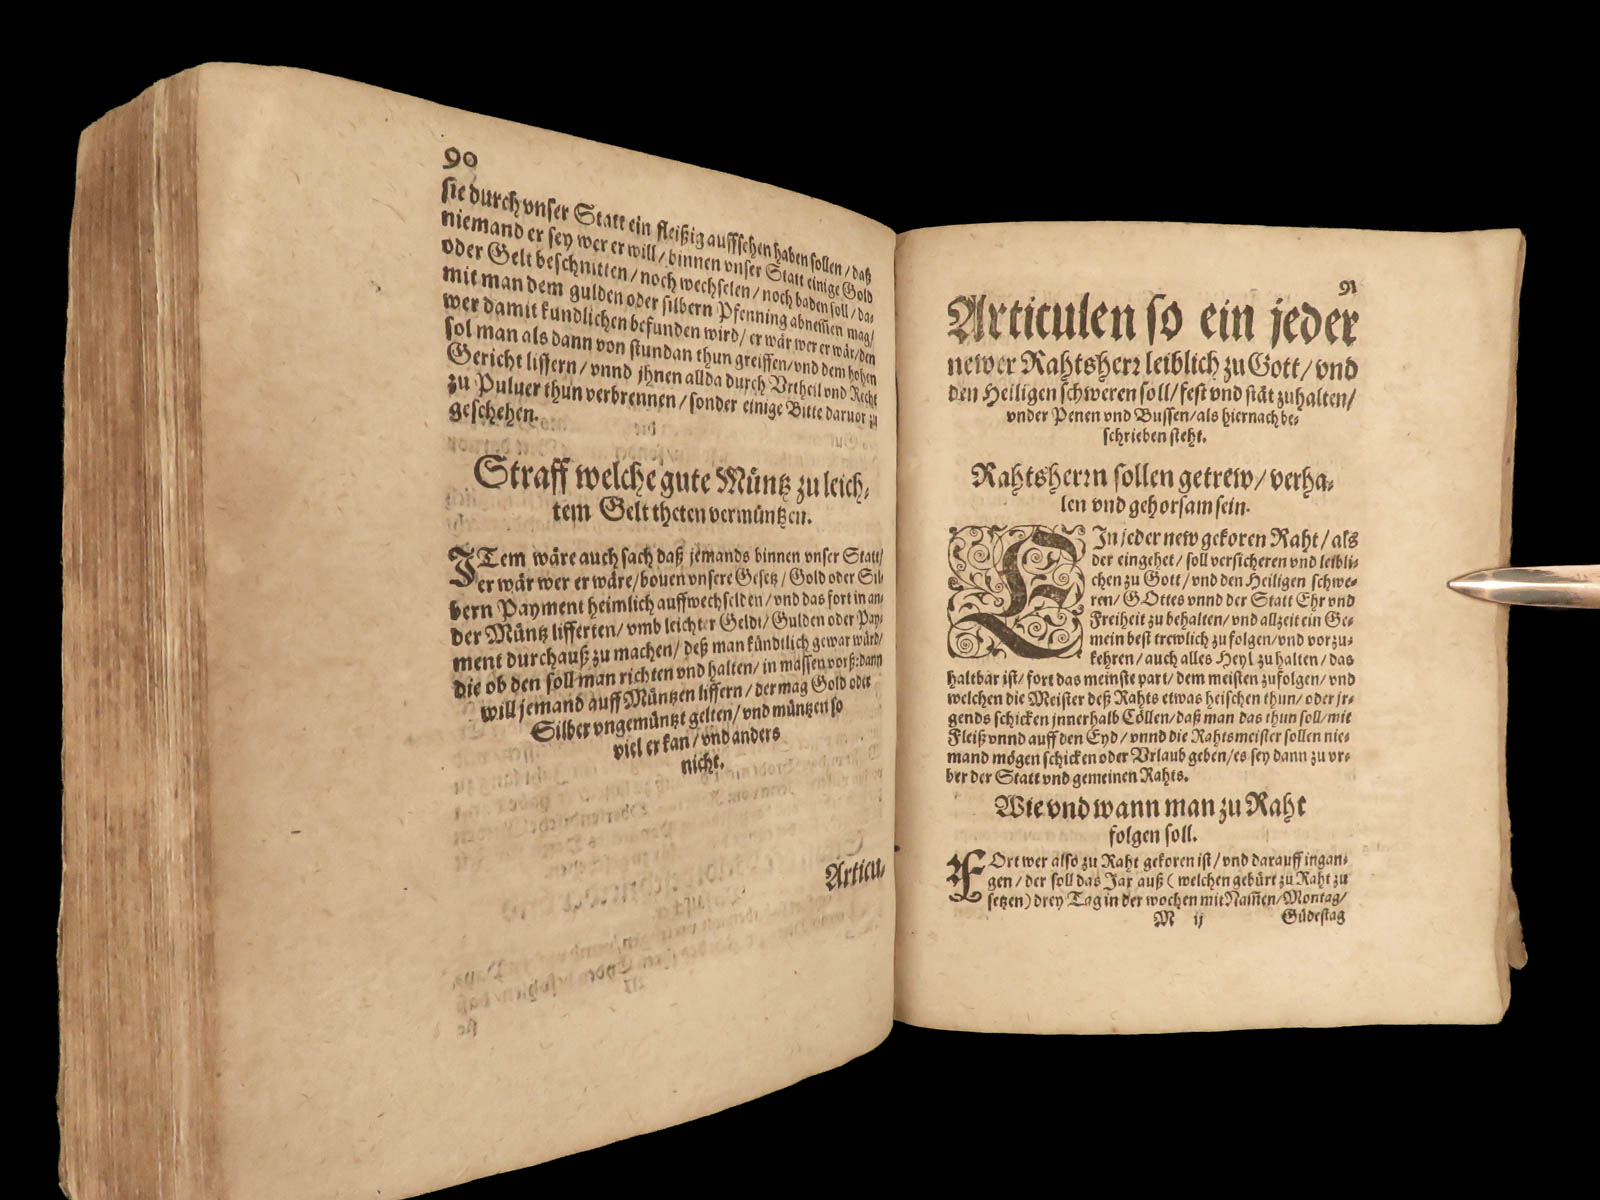 90
sie durch vnser Statt ein fleißig auffsehen haben sollen / daß
niemand er sey wer er will / binnen vnser Statt einige Gold
oder Gelt beschnitten / noch wechselen / noch baden soll / da-
mit man dem gulden oder silbern Pfenning abnem̃en mag /
wer damit kundlichen befunden wird / er wär wer er wär / den
sol man als dann von stundan thun greiffen / vnd dem hohen
Gericht liffern / vnnd jhnen allda durch Vrtheil vnd Recht
zu Puluer thun verbrennen / sonder einige Bitte daruor zu
geschehen.
Straff welche gute Müntz zu leich-
tem Gelt theten vermüntzen.
ITem wäre auch sach daß jemands binnen vnser Statt /
er wär wer er wäre / bouen vnsere Gesetz / Gold oder Sil-
bern Payment heimlich auffwechselden / vnd das fort in an-
der Müntz lifferten / vmb leichter Geldt / Gulden oder Pay-
ment durchauß zu machen / deß man kündtlich gewar würd /
die ob den soll man richten vnd halten / in massen vorß: dann
will jemand auff Müntzen liffern / der mag Gold oder
Silber vngemüntzt gelten / vnd müntzen so
viel er kan / vnd anders
nicht.
Articu-
91
Articulen so ein jeder
newer Rahtsherr leiblich zu Gott / vnd
den Heiligen schweren soll / fest vnd stät zuhalten /
vnder Penen vnd Bussen / als hiernach be-
schrieben steht.
Rahtsherrn sollen getrew / verha-
len vnd gehorsam sein.
EIn jeder new gekoren Raht / als
der eingehet / soll versicheren vnd leibli-
chen zu Gott / vnd den Heiligen schwe-
ren / GOttes vnnd der Statt Ehr vnd
Freiheit zu behalten / vnd allzeit ein Ge-
mein best trewlich zu folgen / vnd vorzu-
kehren / auch alles Heyl zu halten / das
haltbar ist / fort das meinste part / dem meisten zufolgen / vnd
welchen die Meister deß Rahts etwas heischen thun / oder jr-
gends schicken jnnerhalb Cöllen / daß man das thun soll / mit
Fleiß vnnd auff den Eyd / vnnd die Rahtsmeister sollen nie-
mand mögen schicken oder Vrlaub geben / es sey dann zu vr-
ber der Statt vnd gemeinen Rahts.
Wie vnd wann man zu Raht
folgen soll.
FOrt wer also zu Raht gekoren ist / vnd darauff ingan-
gen / der soll das Jar auß ( welchen gebürt zu Raht zu
setzen ) drey Tag in der wochen mit Nam̃en / Montag /
M ij Güdestag